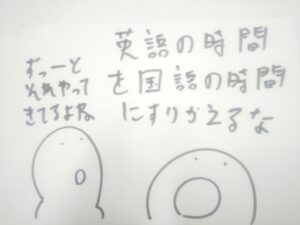 英語の時間
を国語の時間
にすりかえるな
ずっーと
それやって
きてるよな